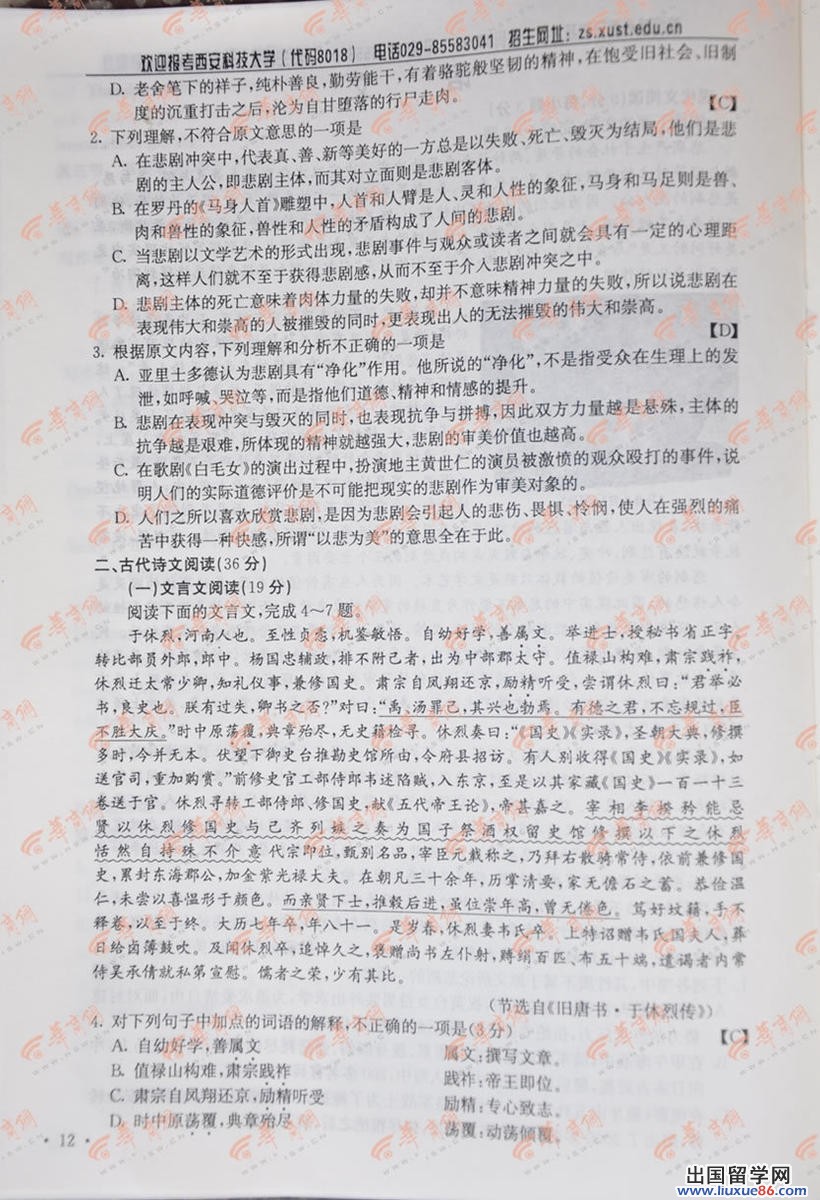 欢迎报考西安科技大学(代码8018) 电话029-85583041 招生网址:zs.xust.edu.cn
D. 老舍笔下的祥子,纯朴善良,勤劳能干,有着骆驼般坚韧的精神,在饱受旧社会、旧制
度的沉重打击之后,沦为自甘堕落的行尸走肉。
2. 下列理解,不符合原文意思的一项是 【C】
A. 在悲剧冲突中,代表真、善、新等美好的一方总是以失败、死亡、毁灭为结局,他们是悲
剧的主人公,即悲剧主体,而其对立面则是悲剧客体。
B. 在罗丹的《马身人首》雕塑中,人首和人臂是人、灵和人性的象征,马身和马足则是兽、
肉和兽性的象征,兽性和人性的矛盾构成了人间的悲剧。
C. 当悲剧以文学艺术的形式出现,悲剧事件与观众或读者之间就会具有一定的心理距
离,这样人们就不至于获得悲剧感,从而不至于介入悲剧冲突之中。
D. 悲剧主体的死亡意味着肉体力量的失败,却并不意味精神力量的失败,所以说悲剧在
表现伟大和崇高的人被摧毁的同时,更表现出人的无法摧毁的伟大和崇高。
3. 根据原文内容,下列理解和分析不正确的一项是 【D】
A. 亚里士多德认为悲剧具有“净化”作用。他所说的“净化”,不是指受众在生理上的发
泄,如呼喊、哭泣等,而是指他们道德、精神和情感的提升。
B. 悲剧在表现冲突与毁灭的同时,也表现抗争与拼搏,因此双方力量越是悬殊,主体的
抗争越是艰难,所体现的精神就越强大,悲剧的审美价值也越高。
C. 在歌剧《白毛女》的演出过程中,扮演地主黄世仁的演员被激愤的观众殴打的事件,说
明人们的实际道德评价是不可能把现实的悲剧作为审美对象的。
D. 人们之所以喜欢欣赏悲剧,是因为悲剧会引起人的悲伤、畏惧、怜悯,使人在强烈的痛
苦中获得一种快感,所谓“以悲为美”的意思全在于此。
二、古代诗文阅读(36分)
(一)文言文阅读(19分)
阅读下面的文言文,完成4~7题。
于休烈,河南人也。至性贞悫,机鉴敏悟。自幼好学,善属文。举进士,授秘书省正字。
转比部员外郎,郎中。杨国忠辅政,排不附己者,出为中部郡太守。值禄山构难,肃宗践祚,
休烈迁太常少卿,知礼仪事,兼修国史。肃宗自凤翔还京,励精听受,尝谓休烈曰:“君举必
书,良史也。朕有过失,卿书之否?”对曰:“禹、汤罪己,其兴也勃焉。有德之君,不忘规过,臣
不胜大庆。”时中原荡覆,典章殆尽,无史籍检寻。休烈奏曰:“《国史》《实录》,圣朝大典,修撰
多时,今并无本。伏望下御史台推勘史馆所由,令府县招访。有人别收得《国史》《实录》,如
送官司,重加购赏。”前修史官工部侍郎韦述陷贼,入东京,至是以其家藏《国史》一百一十三
卷送于官。休烈寻转工部侍郎、修国史,献《五代帝王论》,帝甚嘉之。宰相李揆矜能忌
贤以休烈修国史与己齐列嫉之奏为国子祭酒权留史馆修撰以下之休烈
恬然自持殊不介意代宗即位,甄别名品,宰臣元载称之,乃拜右散骑常侍,依前兼修国
史,累封东海郡公,加金紫光禄大夫。在朝凡三十余年,历掌清要,家无儋石之蓄。恭俭温
仁,未尝以喜愠形于颜色。而亲贤下士,推毂后进,虽位崇年高,曾无倦色。笃好坟籍,手不
释卷,以至于终。大历七年卒,年八十一。是岁春,休烈妻韦氏卒。上特诏赠韦氏国夫人,葬
日给卤簿鼓吹。及闻休烈卒,追悼久之,褒赠尚书左仆射,赙绢百匹、布五十端,遣谒者内常
侍吴承倩就私第宣慰。儒者之荣,少有其比。
(节选自《旧唐书·于休烈传》)
4. 对下列句子中加点的词语的解释,不正确的一项是(3分) 【C】
A. 自幼好学,善属文 属文:撰写文章。
B. 值禄山构难,肃宗践祚 践祚:帝王即位。
C. 肃宗自凤翔还京,励精听受 励精:专心致志。
D. 时中原荡覆,典章殆尽 荡覆:动荡倾覆。
·12·
出国留学网
www.liuxue86.com